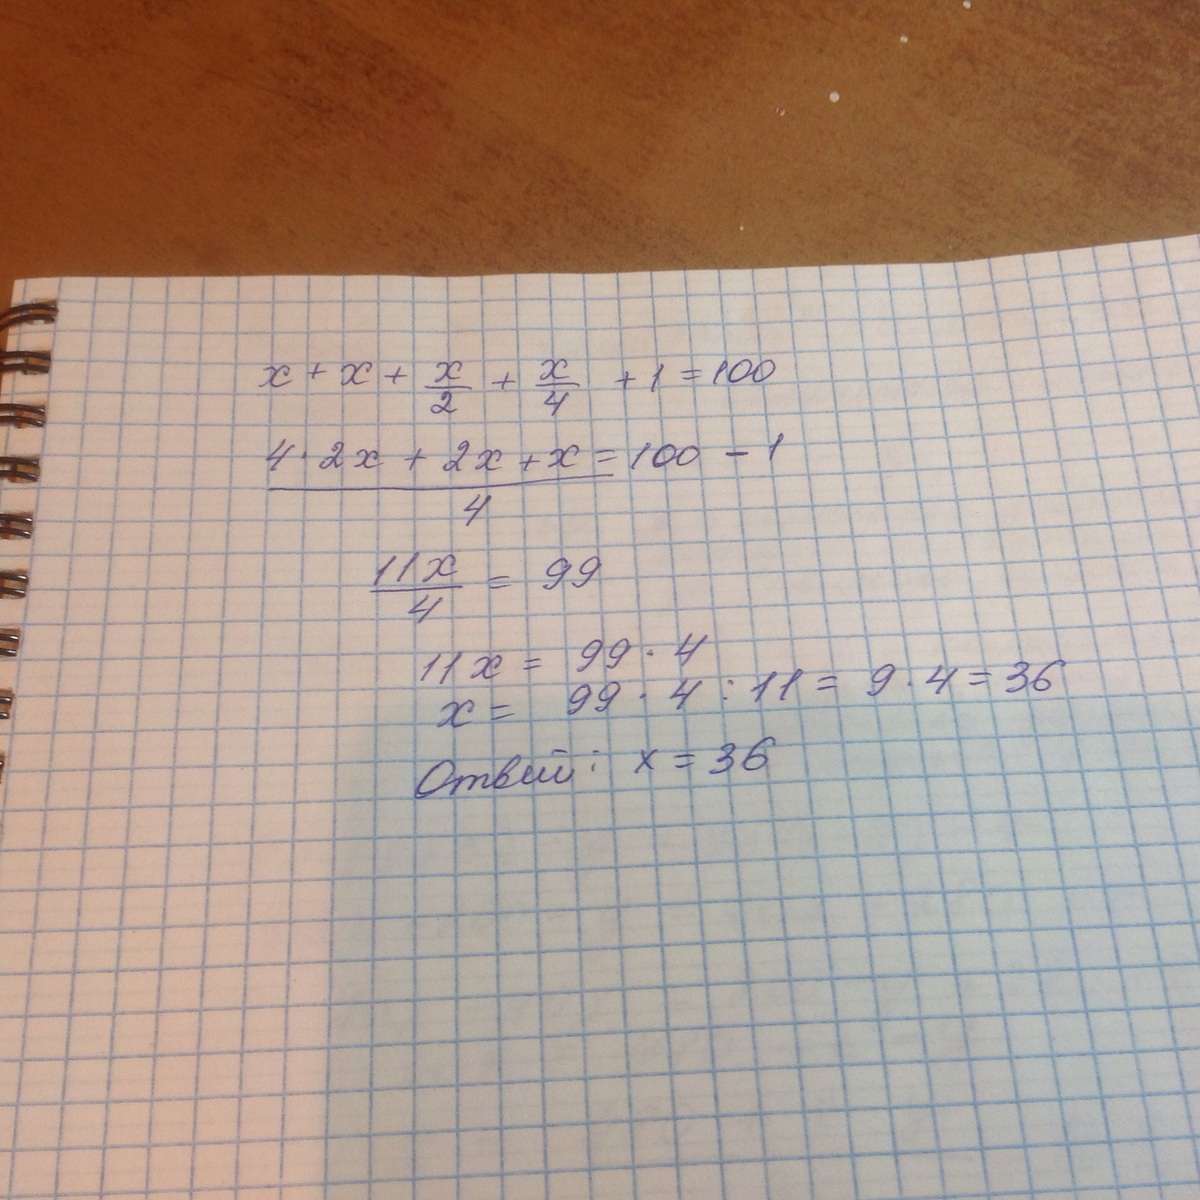 x + x + x/2 + x/4 + 1 = 100
4 · 2x + 2x + x = 100 - 1
4
11x/4 = 99
11x = 99 · 4
x = 99 · 4 : 11 = 9 · 4 = 36
Ответ: x = 36